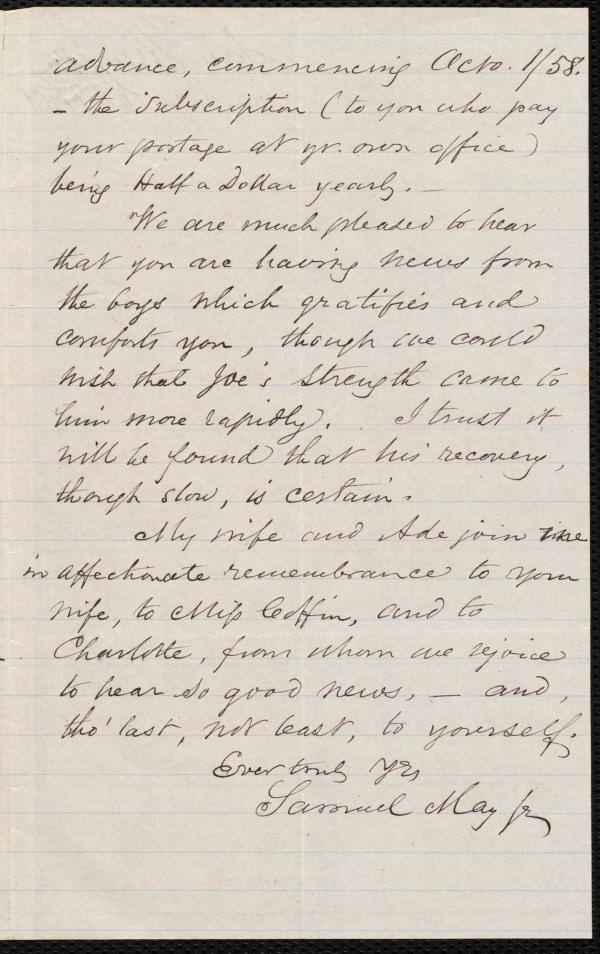 advance, commencing Octo. 1/58.
– the Subscription (to you who pay
your postage at yr. own office)
being Half a Dollar yearly. –
We are much pleased to hear
that you are having news from
the boys which gratifies and
comforts you, though we could
wish that Joe's strength came to
him more rapidly. I trust it
will be found that his recovery,
though slow, is certain.
My wife and Ade join me
in affectionate remembrance to your
wife, to Miss Coffin, and to
Charlotte, from whom we rejoice
to hear so good news, – and,
tho' last, not least, to yourself.
Ever truly Yrs
Samuel May Jr